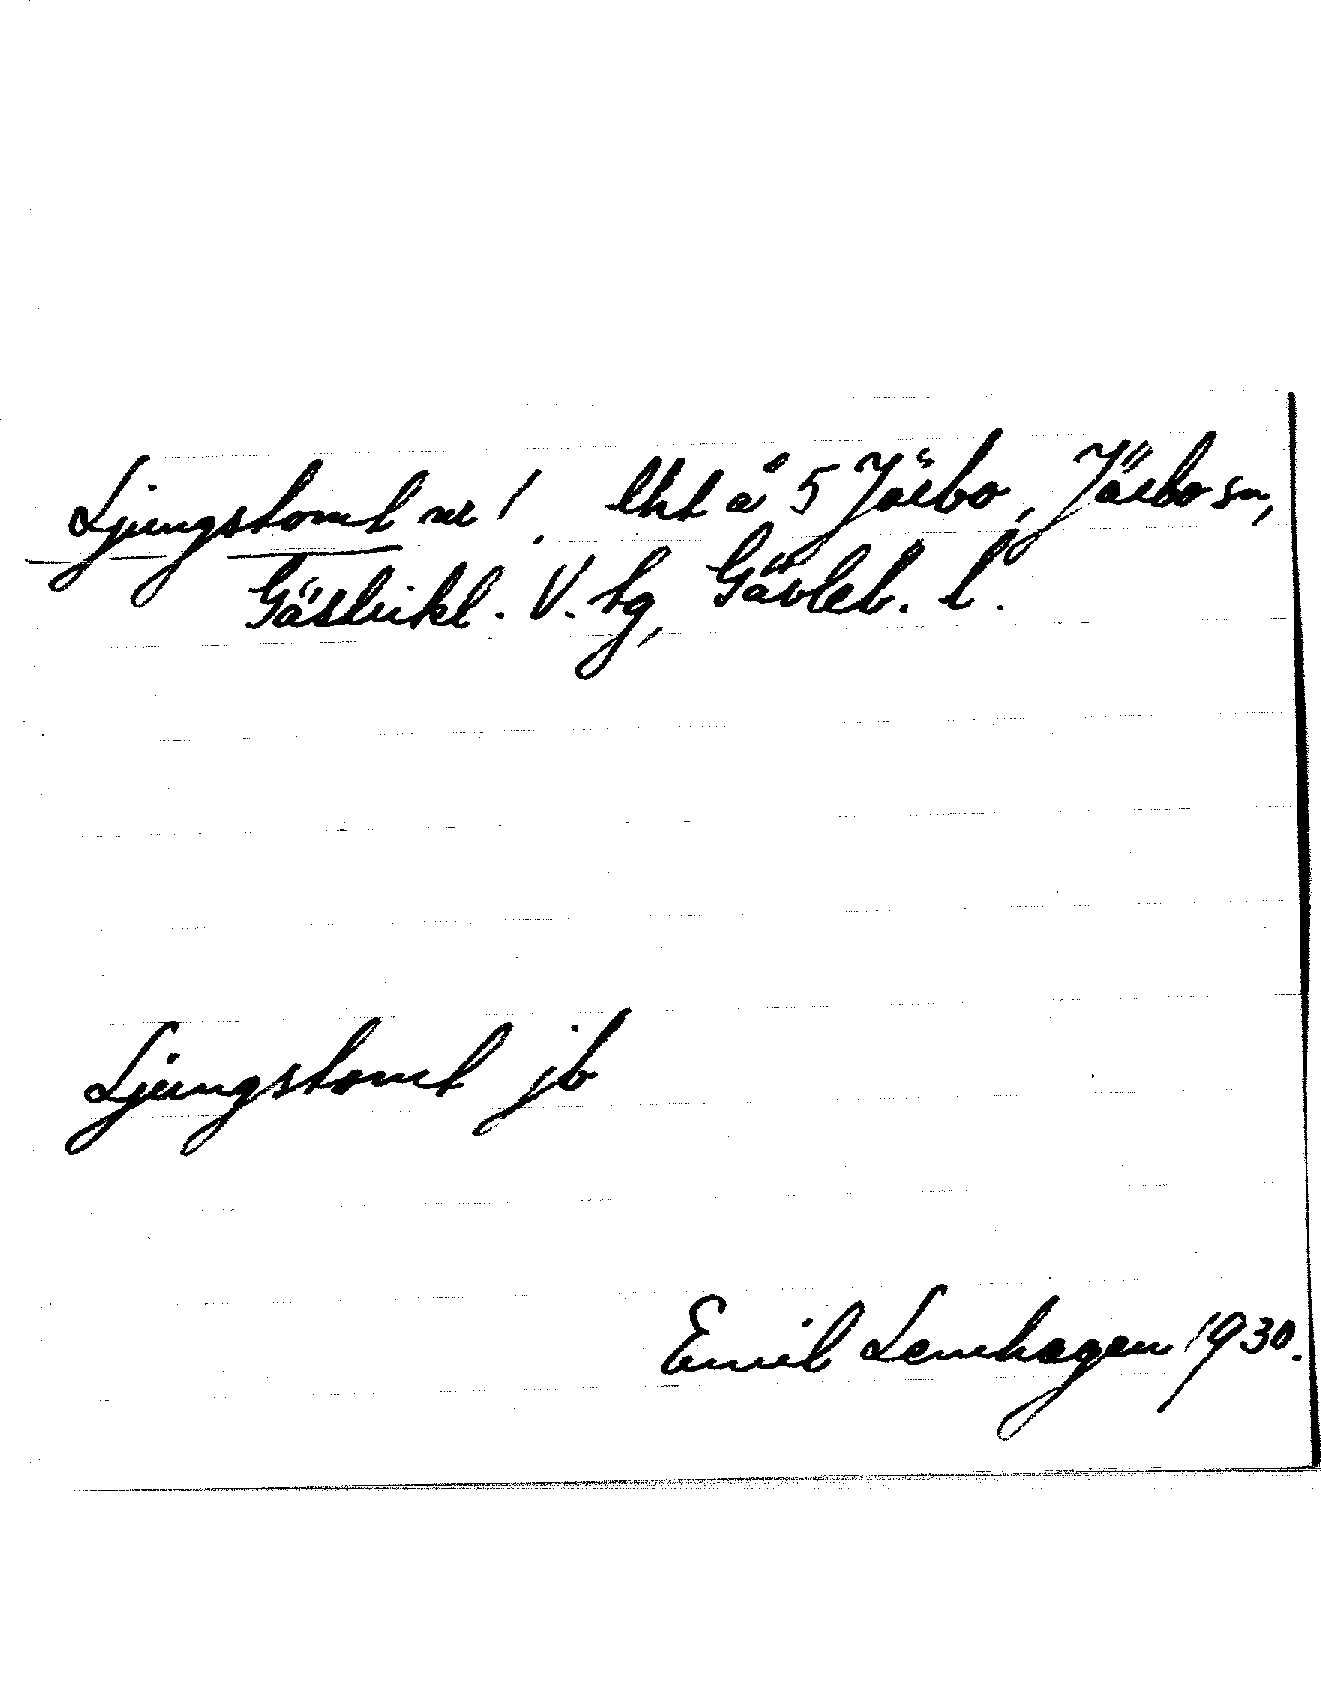 Ljungstomt nr 1. lht å 5 Järbo, Järbo sn,
Gästrikl. V. tg, Gävleb. l.
Ljungstomt jb
Emil Lenhagen 1930.